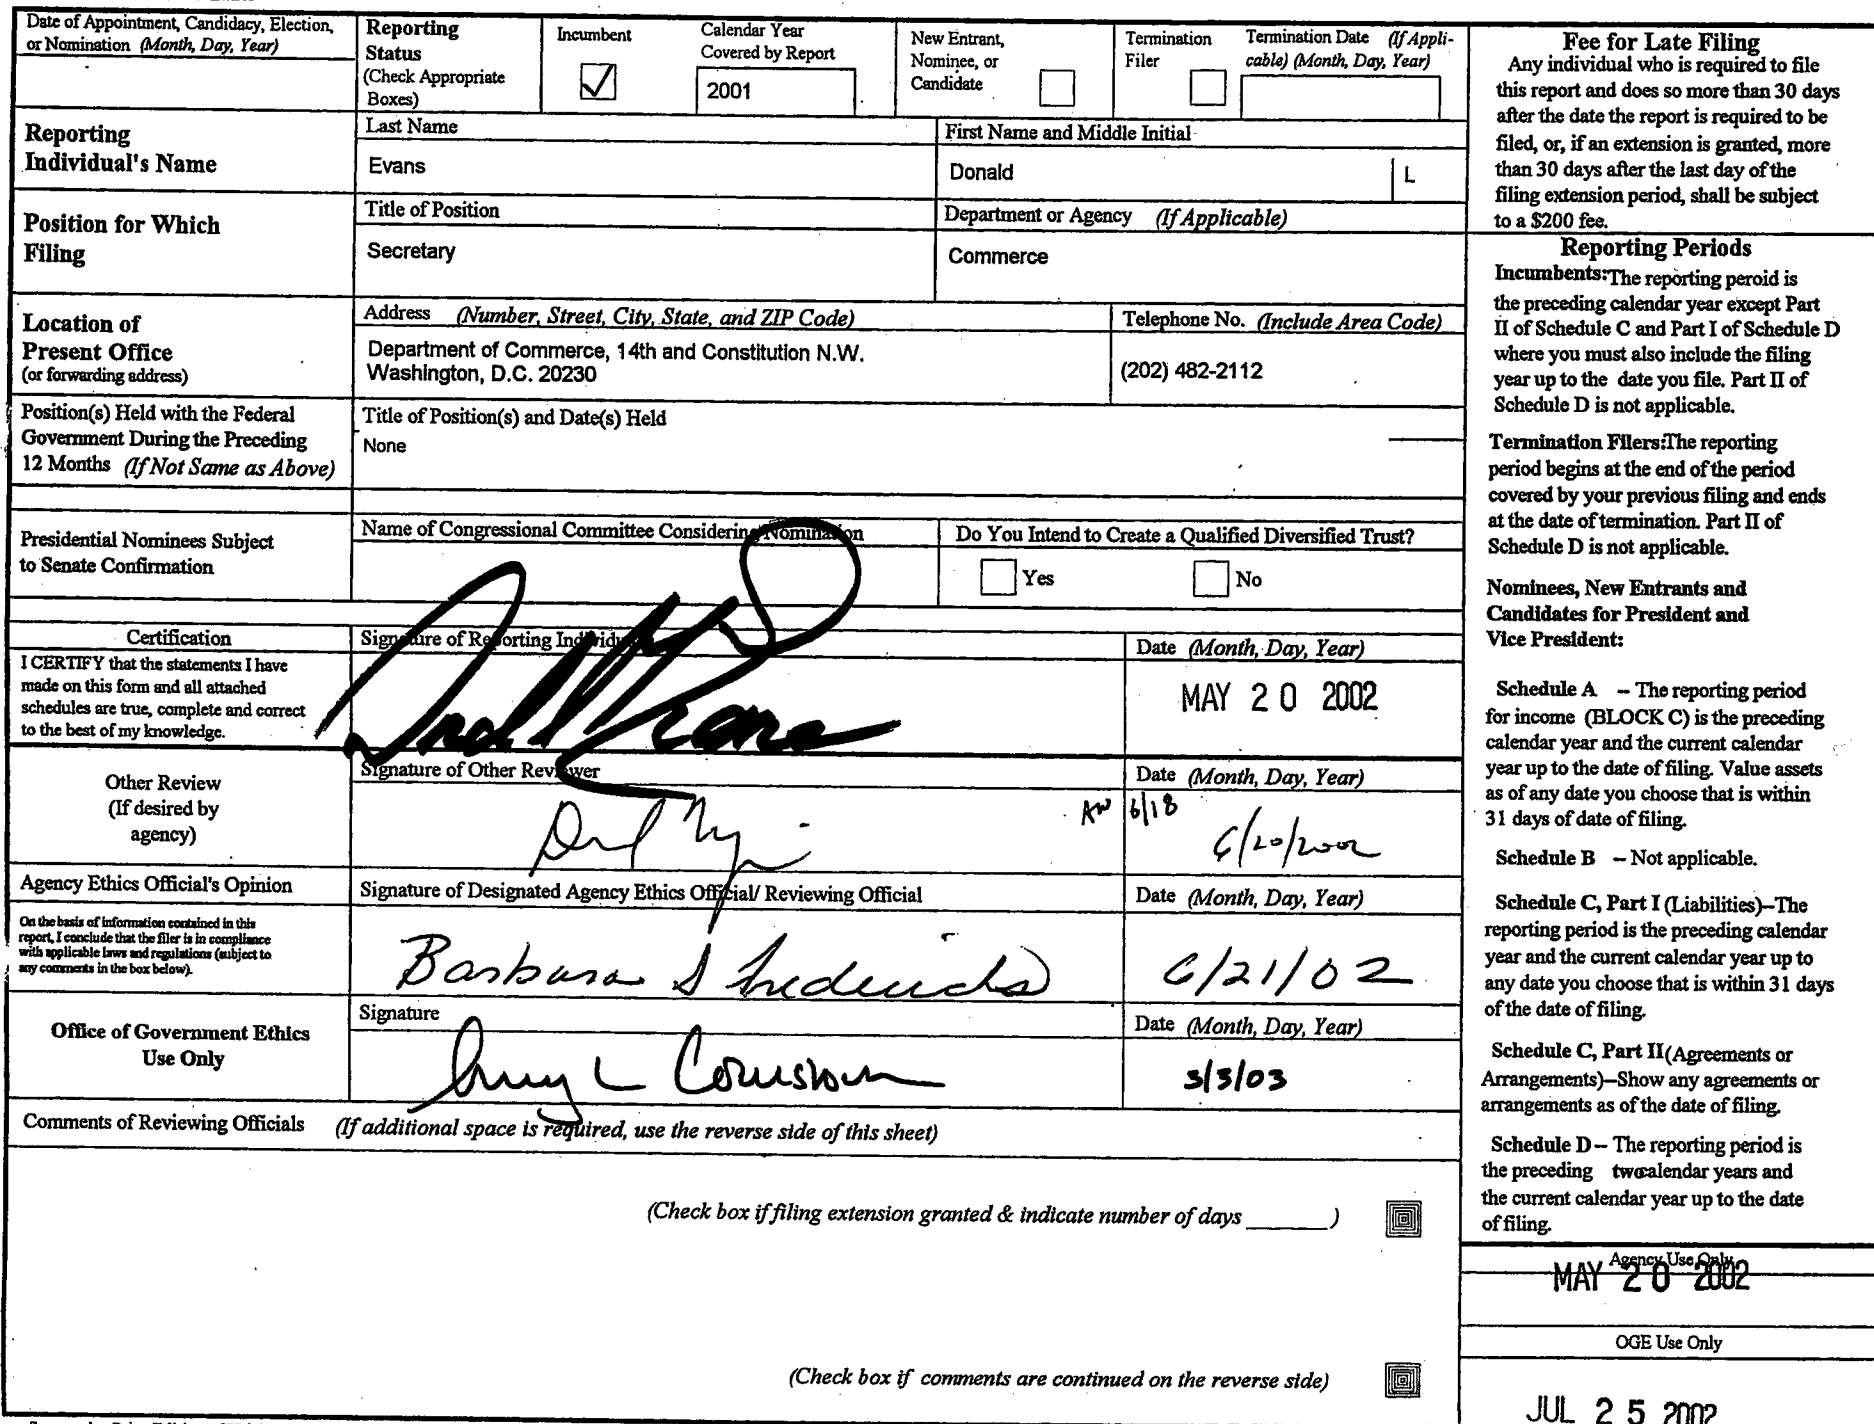 Date of Appointment, Candidacy, Election,
or Nomination (Month, Day, Year)
Reporting
Status
(Check Appropriate
Boxes)
Incumbent
Calendar Year
Covered by Report
2001
New Entrant,
Nominee, or
Candidate
Termination
Filer
Termination Date (If Appli-
cable) (Month, Day, Year)
Reporting
Individual's Name
Last Name
Evans
First Name and Middle Initial
Donald
L
Position for Which
Filing
Title of Position
Secretary
Department or Agency (If Applicable)
Commerce
Location of
Present Office
(or forwarding address)
Address (Number, Street, City, State, and ZIP Code)
Department of Commerce, 14th and Constitution N.W.
Washington, D.C. 20230
Telephone No. (Include Area Code)
(202) 482-2112
Position(s) Held with the Federal
Government During the Preceding
12 Months (If Not Same as Above)
Title of Position(s) and Date(s) Held
None
Presidential Nominees Subject
to Senate Confirmation
Name of Congressional Committee Considering Nomination
Do You Intend to Create a Qualified Diversified Trust?
Yes
No
Certification
I CERTIFY that the statements I have
made on this form and all attached
schedules are true, complete and correct
to the best of my knowledge.
Signature of Reporting Individual
Date (Month, Day, Year)
MAY 20 2002
Other Review
(If desired by
agency)
Signature of Other Reviewer
Date (Month, Day, Year)
AW 6/18
6/20/2002
Agency Ethics Official's Opinion
On the basis of information contained in this
report, I conclude that the filer is in compliance
with applicable laws and regulations (subject to
any comments in the box below).
Signature of Designated Agency Ethics Official/ Reviewing Official
Barbara S Fredericks
Date (Month, Day, Year)
6/21/02
Office of Government Ethics
Use Only
Signature
Amy L Comstock
Date (Month, Day, Year)
3/3/03
Comments of Reviewing Officials (If additional space is required, use the reverse side of this sheet)
(Check box if filing extension granted & indicate number of days ______ )
(Check box if comments are continued on the reverse side)
Fee for Late Filing
Any individual who is required to file
this report and does so more than 30 days
after the date the report is required to be
filed, or, if an extension is granted, more
than 30 days after the last day of the
filing extension period, shall be subject
to a $200 fee.
Reporting Periods
Incumbents:The reporting peroid is
the preceding calendar year except Part
II of Schedule C and Part I of Schedule D
where you must also include the filing
year up to the date you file. Part II of
Schedule D is not applicable.
Termination Filers:The reporting
period begins at the end of the period
covered by your previous filing and ends
at the date of termination. Part II of
Schedule D is not applicable.
Nominees, New Entrants and
Candidates for President and
Vice President:
Schedule A – The reporting period
for income (BLOCK C) is the preceding
calendar year and the current calendar
year up to the date of filing. Value assets
as of any date you choose that is within
31 days of date of filing.
Schedule B – Not applicable.
Schedule C, Part I (Liabilities)–The
reporting period is the preceding calendar
year and the current calendar year up to
any date you choose that is within 31 days
of the date of filing.
Schedule C, Part II(Agreements or
Arrangements)–Show any agreements or
arrangements as of the date of filing.
Schedule D – The reporting period is
the preceding twocalendar years and
the current calendar year up to the date
of filing.
Agency Use Only
MAY 20 2002
OGE Use Only
JUL 25 2002